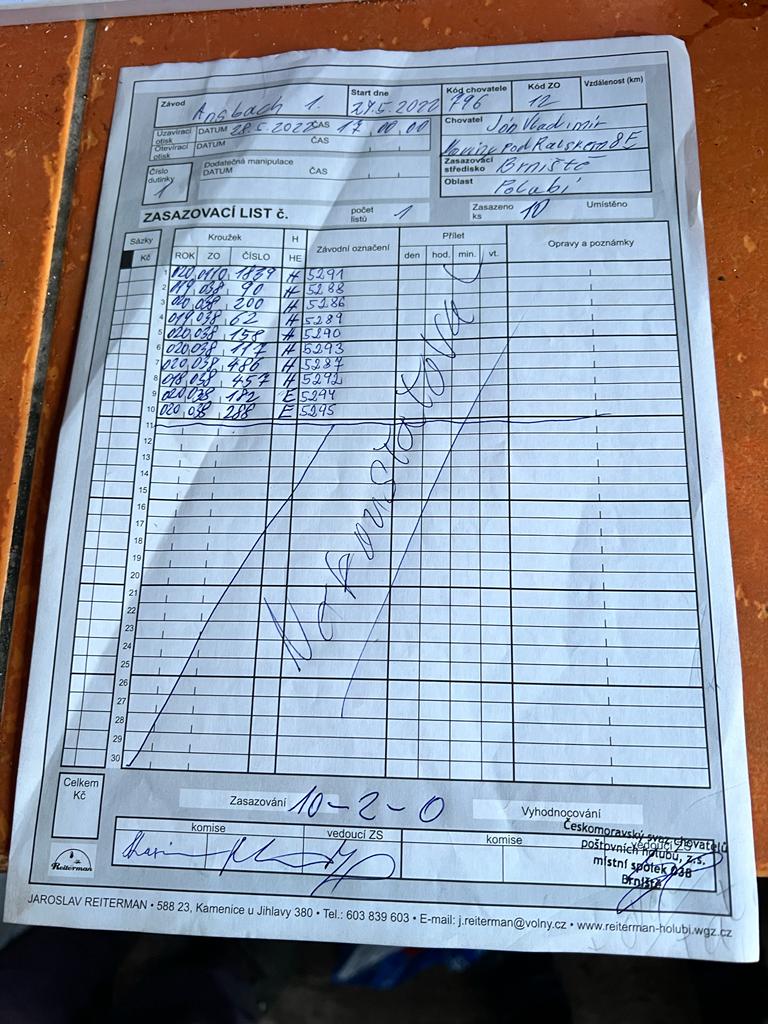 Závod Ansbach 1. Start dne 27.5.2022 Kód chovatele 796 Kód ZO 12 Vzdálenost (km)
Uzavírací otisk DATUM 28.5.2022 ČAS 17 00 00
Otevírací otisk DATUM ČAS
Chovatel Ján Vladimír
pod Ralskem 8E
Číslo dutinky 1 Dodatečná manipulace DATUM ČAS
Zasazovací středisko Brniště
Oblast Polabí
ZASAZOVACÍ LIST č. počet listů 1 Zasazeno ks 10 Umístěno
Sázky Kroužek H Závodní označení Přílet Opravy a poznámky
Kč ROK ZO ČÍSLO HE den hod. min. vt.
1 020 0110 1839 H 5291
2 019 038 90 H 5288
3 020 038 200 H 5286
4 019 038 62 H 5289
5 020 038 158 H 5290
6 020 038 117 H 5293
7 020 038 486 H 5287
8 018 038 457 H 5292
9 020 038 182 E 5294
10 020 038 288 E 5295
11
12
13
14
15
16
17
18
19
20
21
22
23
24
25
26
27
28
29
30
Celkem Kč
Zasazování 10-2-0 Vyhodnocování
komise vedoucí ZS komise vedoucí ZS
Českomoravský svaz chovatelů
poštovních holubů, z.s.
místní spolek 038
Brniště
Reiterman
JAROSLAV REITERMAN • 588 23, Kamenice u Jihlavy 380 • Tel.: 603 839 603 • E-mail: j.reiterman@volny.cz • www.reiterman-holubi.wgz.cz